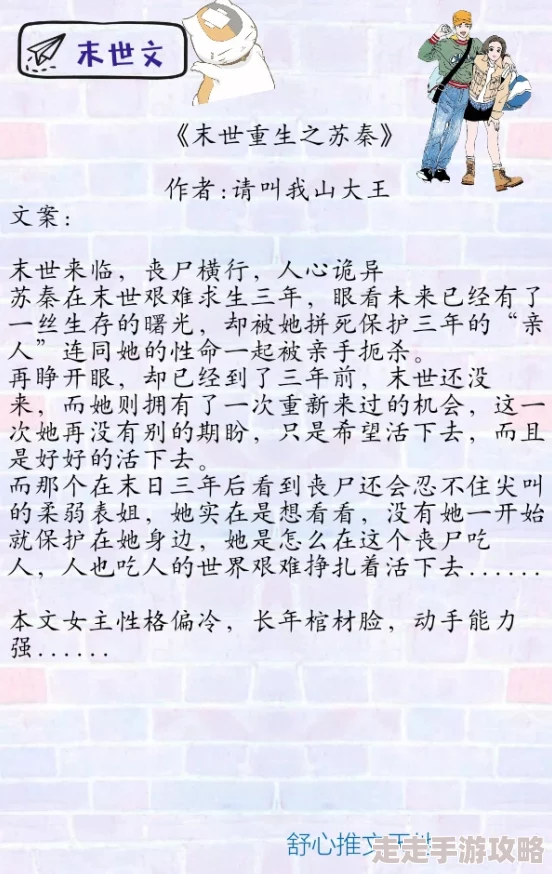 末世文
《末世重生之苏秦》
作者:请叫我山大王
文案:
末世来临，丧尸横行，人心诡异
苏秦在末世艰难求生三年，眼看未来已经有了
一丝生存的曙光，却被她拼死保护三年的“亲
人”连同她的性命一起被亲手扼杀。
再睁开眼，却已经到了三年前，末世还没
来，而她则拥有了一次重新来过的机会，这一
次她再没有别的期盼，只是希望活下去，而且
是好好的活下去。
而那个在末日三年后看到丧尸还会忍不住尖叫
的柔弱表姐，她实在是想看看，没有她一开始
就保护在她身边，她是怎么在这个丧尸吃
人，人也吃人的世界艰难挣扎着活下去......
本文女主性格偏冷，长年棺材脸，动手能力
强......
舒心推文
走走手游攻略